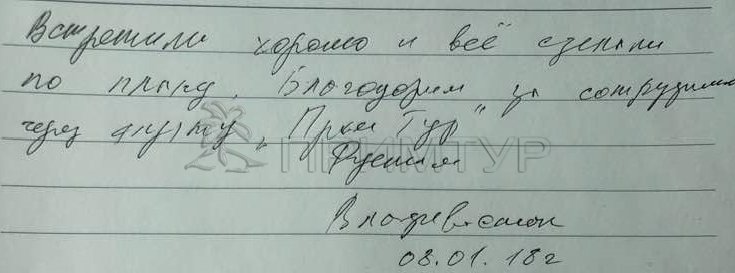 Встретили хорошо и всё сделали
по плану. Благодарим за сотруднич
через "Прим Тур"
ПРИМТУР
Владивосток
08.01.18г